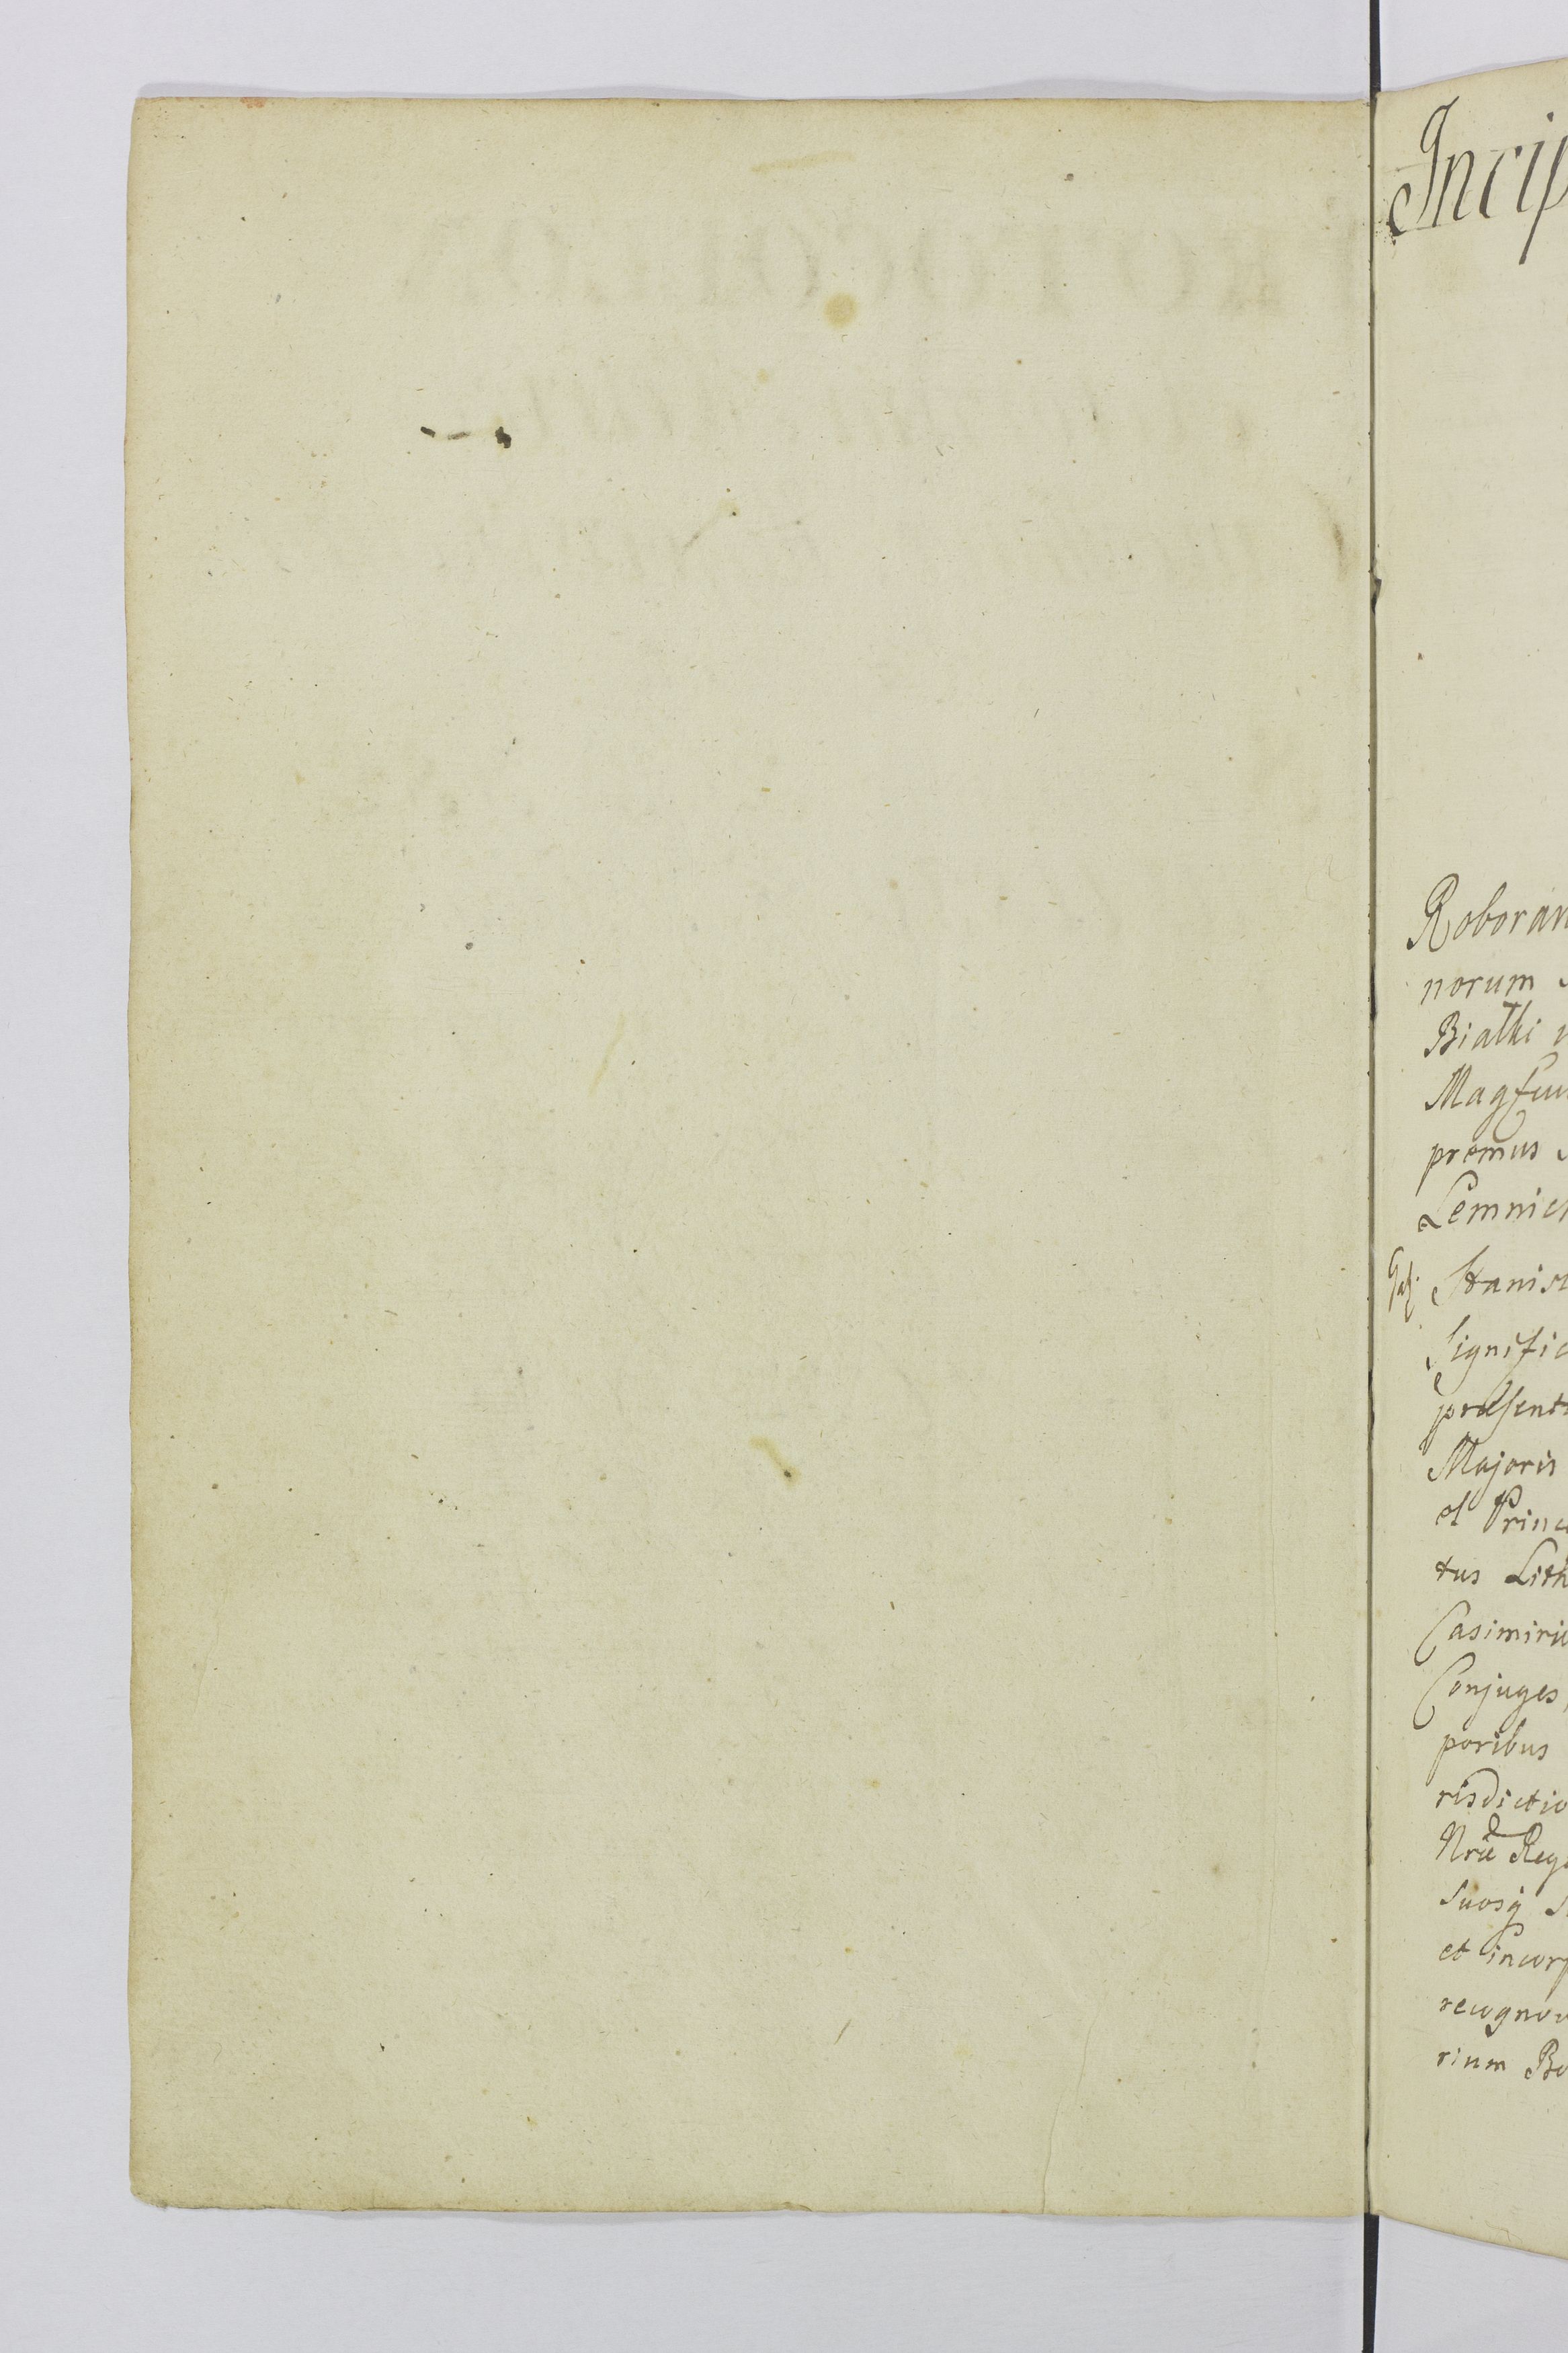 Incip
Roboran
norum
Bialki
Mag
premus
Lemnick
Stanisl
Signific
præsent
Majoris
et Princ
tus Lith
Casimiri
Conjuges,
poribus
risdictio
Nrã Reg
suosq
et incorp
recognov
rium Bo